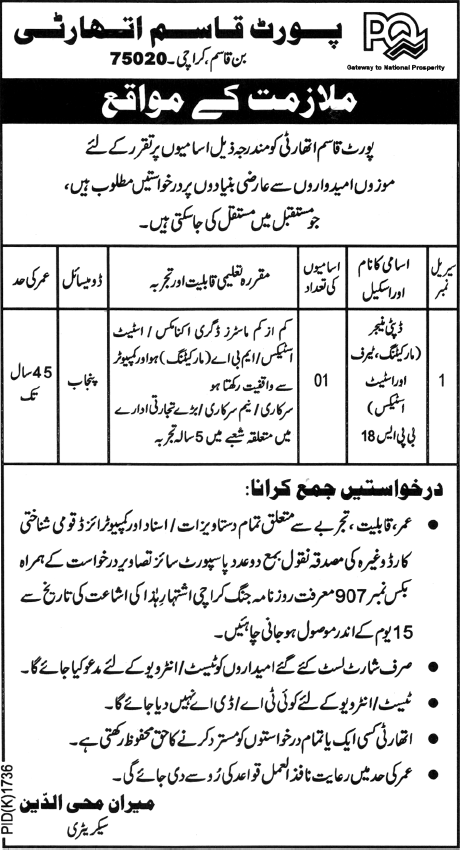 پورٹ قاسم اتھارٹی
بن قاسم، کراچی۔75020
PQA
Gateway to National Prosperity
ملازمت کے مواقع
پورٹ قاسم اتھارٹی کو مندرجہ ذیل اسامیوں پر تقرر کے لئے
موزوں امیدواروں سے عارضی بنیادوں پر درخواستیں مطلوب ہیں،
جو مستقبل میں مستقل کی جاسکتی ہیں۔
سیریل نمبر
اسامی کا نام اور اسکیل
اسامیوں کی تعداد
مقررہ تعلیمی قابلیت اور تجربہ
ڈومیسائل
عمر کی حد
1
ڈپٹی منیجر
(مارکیٹنگ، ٹیرف
اور اسٹیٹ
اسٹیکس)
بی پی ایس 18
01
کم از کم ماسٹرز ڈگری اکنامکس/ اسٹیٹ
اسٹیکس/ایم بی اے (مارکیٹنگ) ہو اور کمپیوٹر
سے واقفیت رکھتا ہو
سرکاری/ نیم سرکاری/ بڑے تجارتی ادارے
میں متعلقہ شعبے میں 5 سالہ تجربہ
پنجاب
45 سال
تک
درخواستیں جمع کرانا:
● عمر، قابلیت، تجربے سے متعلق تمام دستاویزات/ اسناد اور کمپیوٹرائزڈ قومی شناختی
کارڈ وغیرہ کی مصدقہ نقول بمع دو عدد پاسپورٹ سائز تصاویر درخواست کے ہمراہ
بکس نمبر 907 معرفت روزنامہ جنگ کراچی اشتہار ہٰذا کی اشاعت کی تاریخ سے
15 یوم کے اندر موصول ہو جانی چاہئیں۔
● صرف شارٹ لسٹ کئے گئے امیدواروں کو ٹیسٹ/انٹرویو کے لئے مدعو کیا جائے گا۔
● ٹیسٹ/ انٹرویو کے لئے کوئی ٹی اے/ ڈی اے نہیں دیا جائے گا۔
● اتھارٹی کسی ایک یا تمام درخواستوں کو مسترد کرنے کا حق محفوظ رکھتی ہے۔
● عمر کی حد میں رعایت نافذ العمل قواعد کی رُو سے دی جائے گی۔
میران محی الدّین
سیکریٹری
PID(K)1736